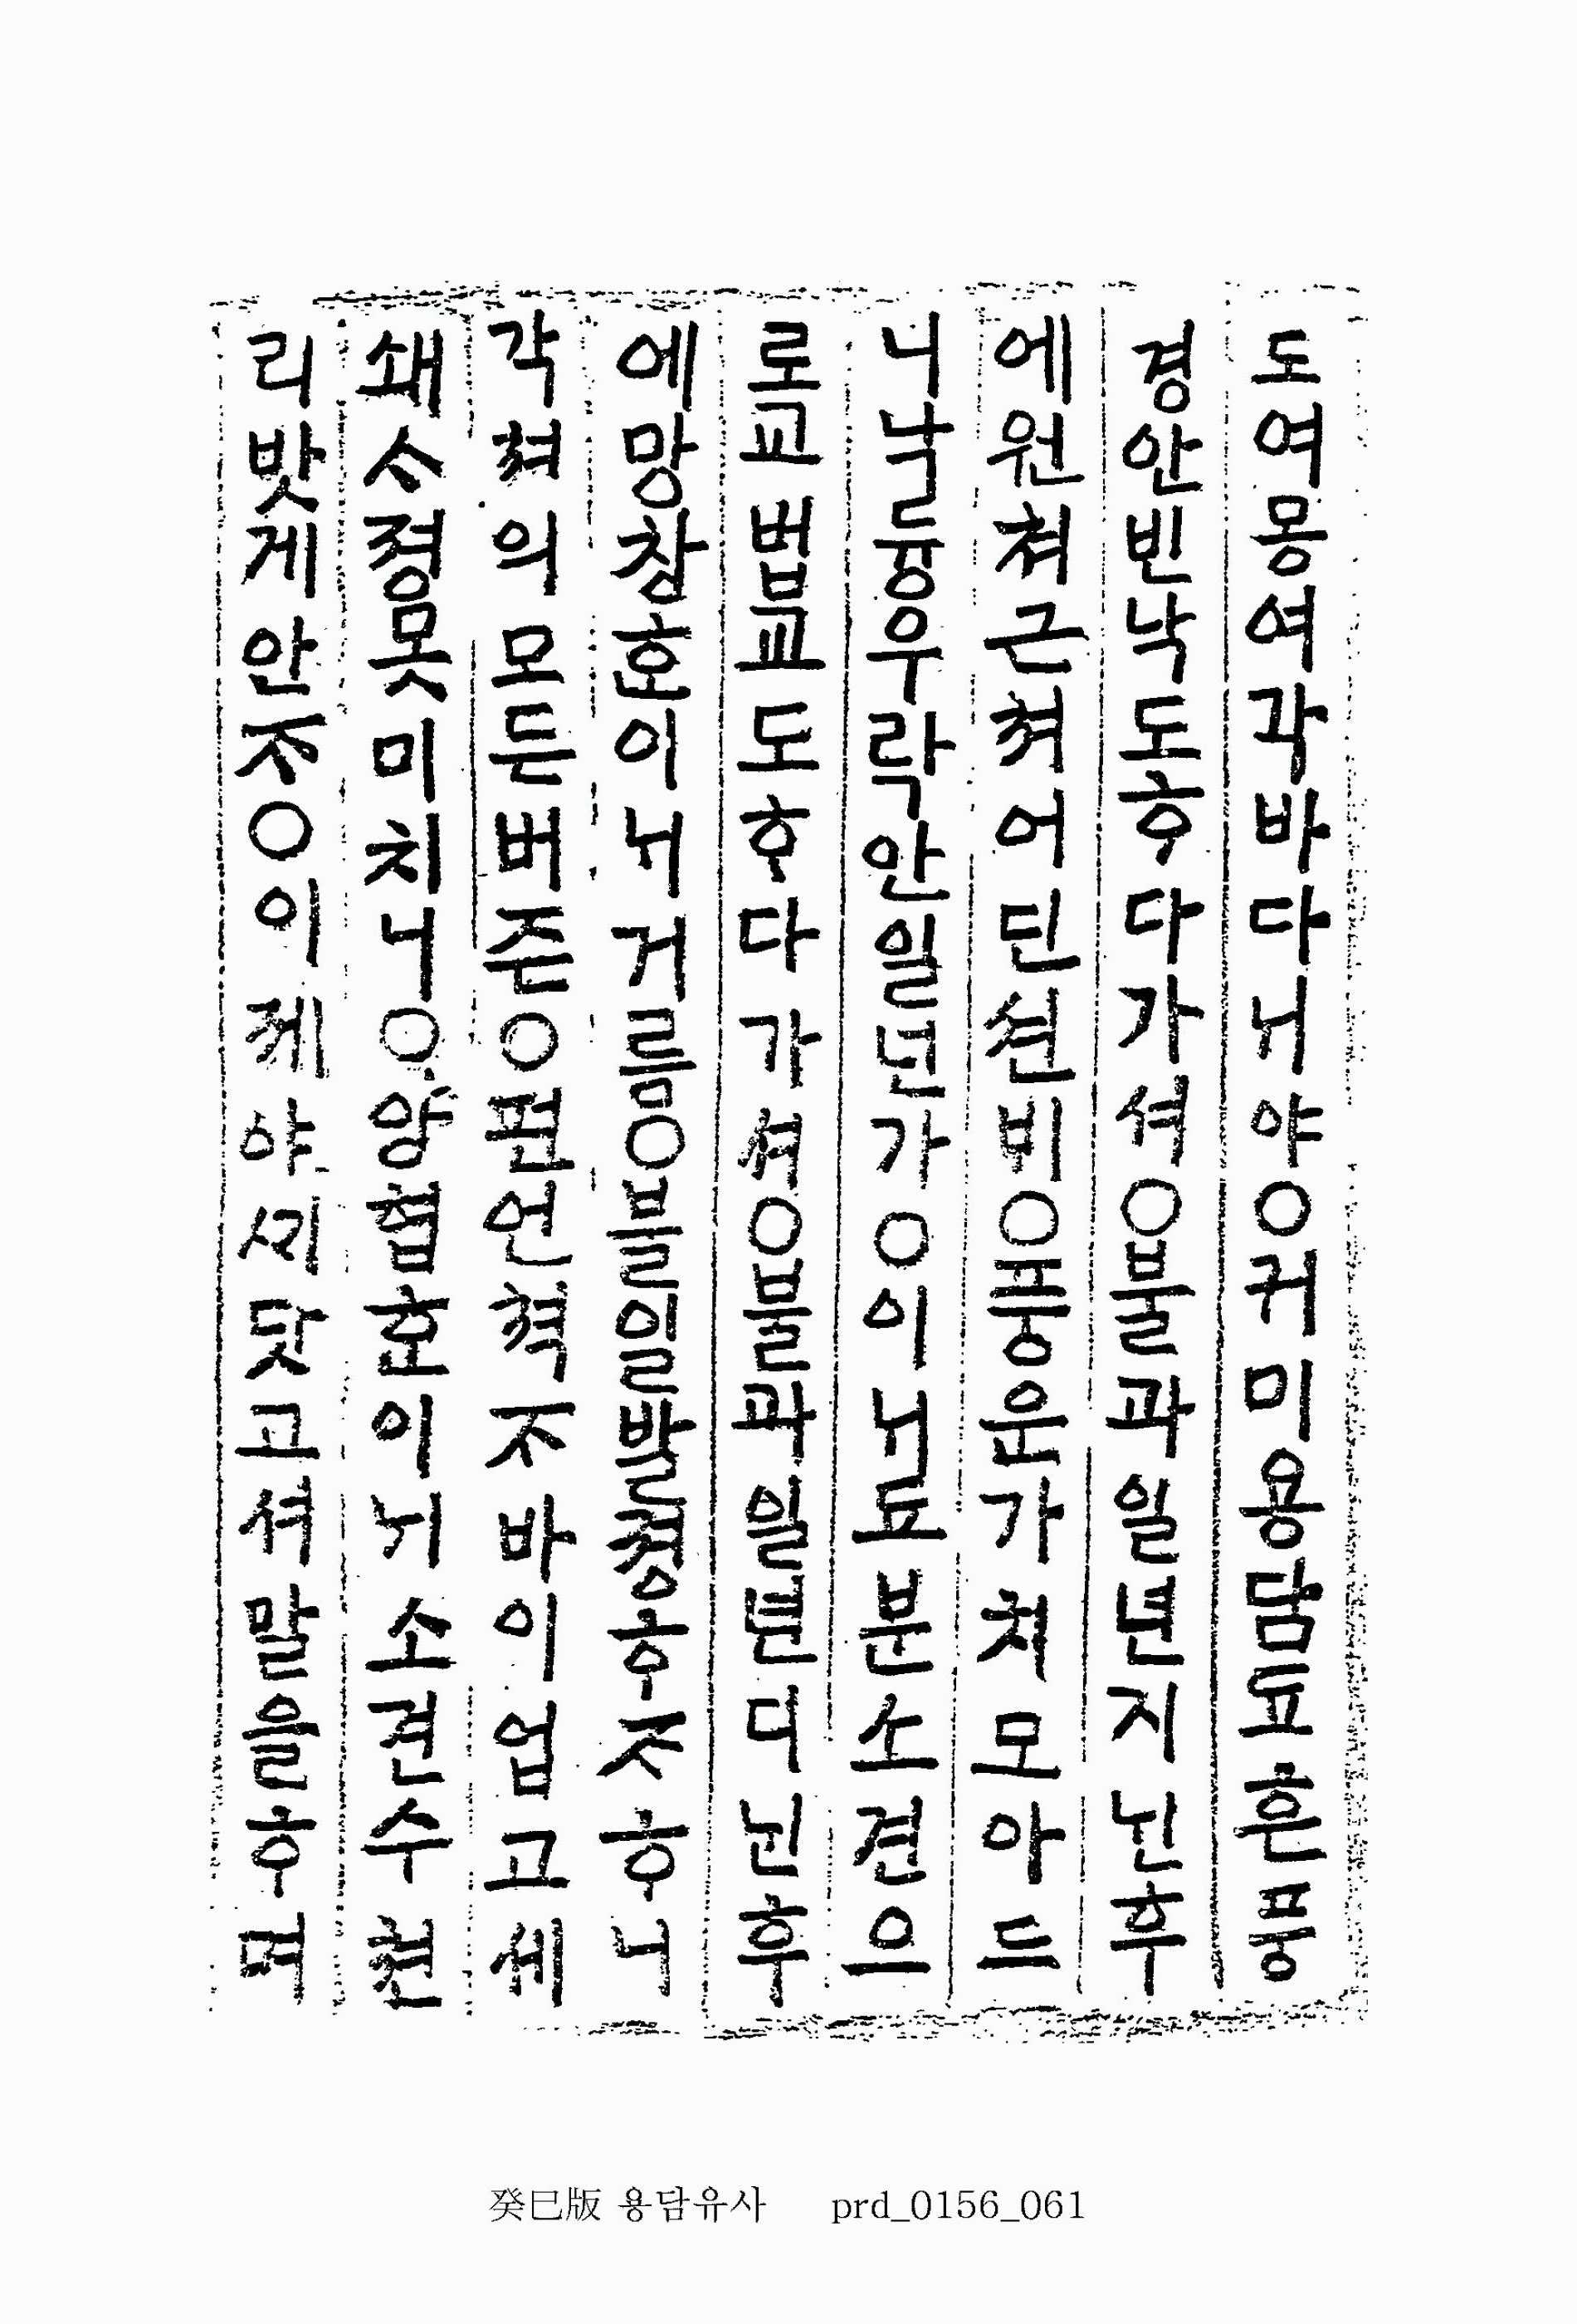 도여몽여각바다ᄂᆡ야○귀미용담됴흔풍
경안빈낙도ᄒᆞ다가셔○불과일년지ᄂᆡᆫ후
에원쳐근쳐어딘션비○풍운가쳐모아드
니낙듕우락안일넌가○이ᄂᆡ됴분소견으
로교법교도ᄒᆞ다가셔○불과일년디ᄂᆡᆫ후
에망창ᄒᆞᆫ이ᄂᆡ거름○불일발졍ᄒᆞᄌᆞᄒᆞ니
각쳐의모든버즌○편언쳑ᄌᆞ바이업고세
쇄ᄉᆞ졍못미치니○양협ᄒᆞᆫ이ᄂᆡ소견수쳔
리밧게안ᄌᆞ○이졔야ᄭᆡ닷고셔말을ᄒᆞ며
癸巳版 용담유사 prd_0156_061